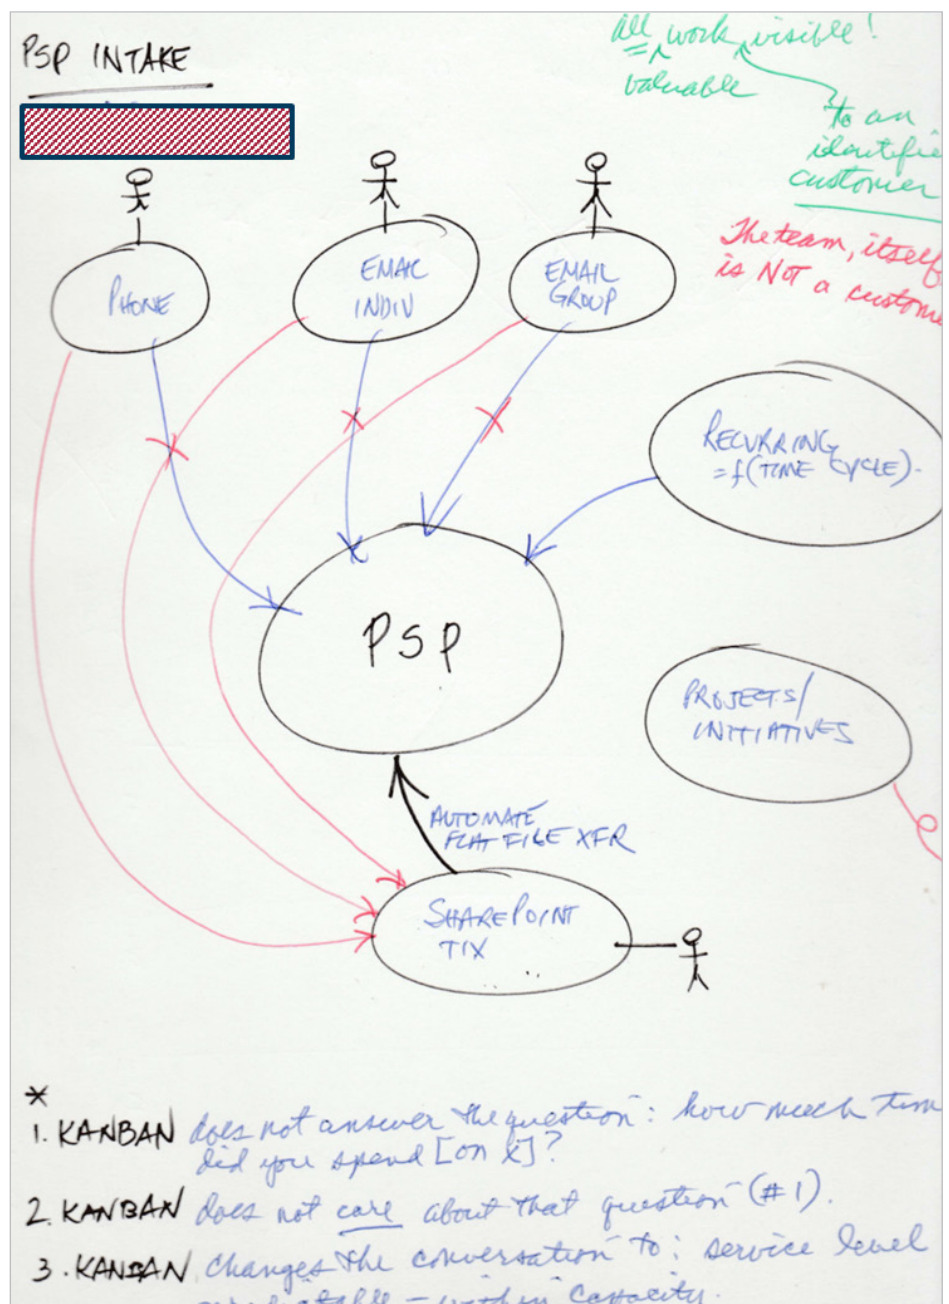 PSP INTAKE
all work visible!
valuable
to an
identifie
customer
The team, itself
is NOT a custome
PHONE
EMAIL
INDIV
EMAIL
GROUP
RECURRING
= f(TIME CYCLE).
PSP
PROJECTS/
INITIATIVES
AUTOMATE
FLAT FILE XFR
SHAREPOINT
TIX
*
1. KANBAN does not answer the question: how much tim
did you spend [on X]?
2. KANBAN does not care about that question (#1).
3. KANBAN changes the conversation to: service level
– within capacity.